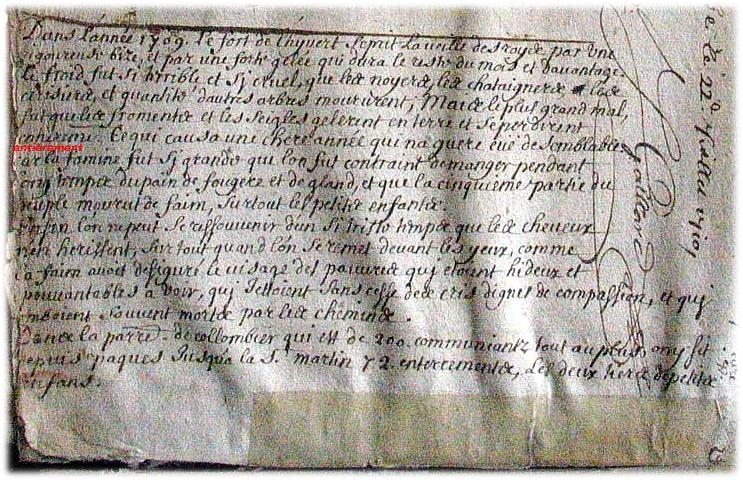 Dans l'année 1709. Le fort de l'hyvert se prit la veille des roys par une
rigoureuse bize, et par une forte gelée qui dura le reste du mois et davantage.
le froid fut si horrible et sy cruel, que les noyers, les chataigners les
cerisiers, et quantité d'autres arbres moururent, Mais le plus grand mal,
fut que les froments et les seigles gelerent en terre et se perdirent
entièrement. Ce qui causa une chere année qui n'a guere eüe de semblable
entièrement
car la famine fut sy grande que l'on fut contraint de manger pendant
long temps du pain de fougere et de gland, et que la cinquieme partie du
peuple mourut de faim, surtout les petits enfants.
Enfin l'on ne peut se ressouvenir d'un si triste temps que les cheveux
n'en herissent, sur tout quand l'on se remet devant les yeux, comme
la faim avoit defiguré le visage des pauvres qui etoient hideux et
epouvantables a voir, qui jettoient sans cesse des cris dignes de compassion, et qui
tomboient souvent morts par les chemins.
Dans la parr. de collombier qui est de 200. communiants tout au plus, on y fit
depuis paques jusqu'a la S. martin 72. enterrements, les deux tiers de petits
enfans.
Gaillard